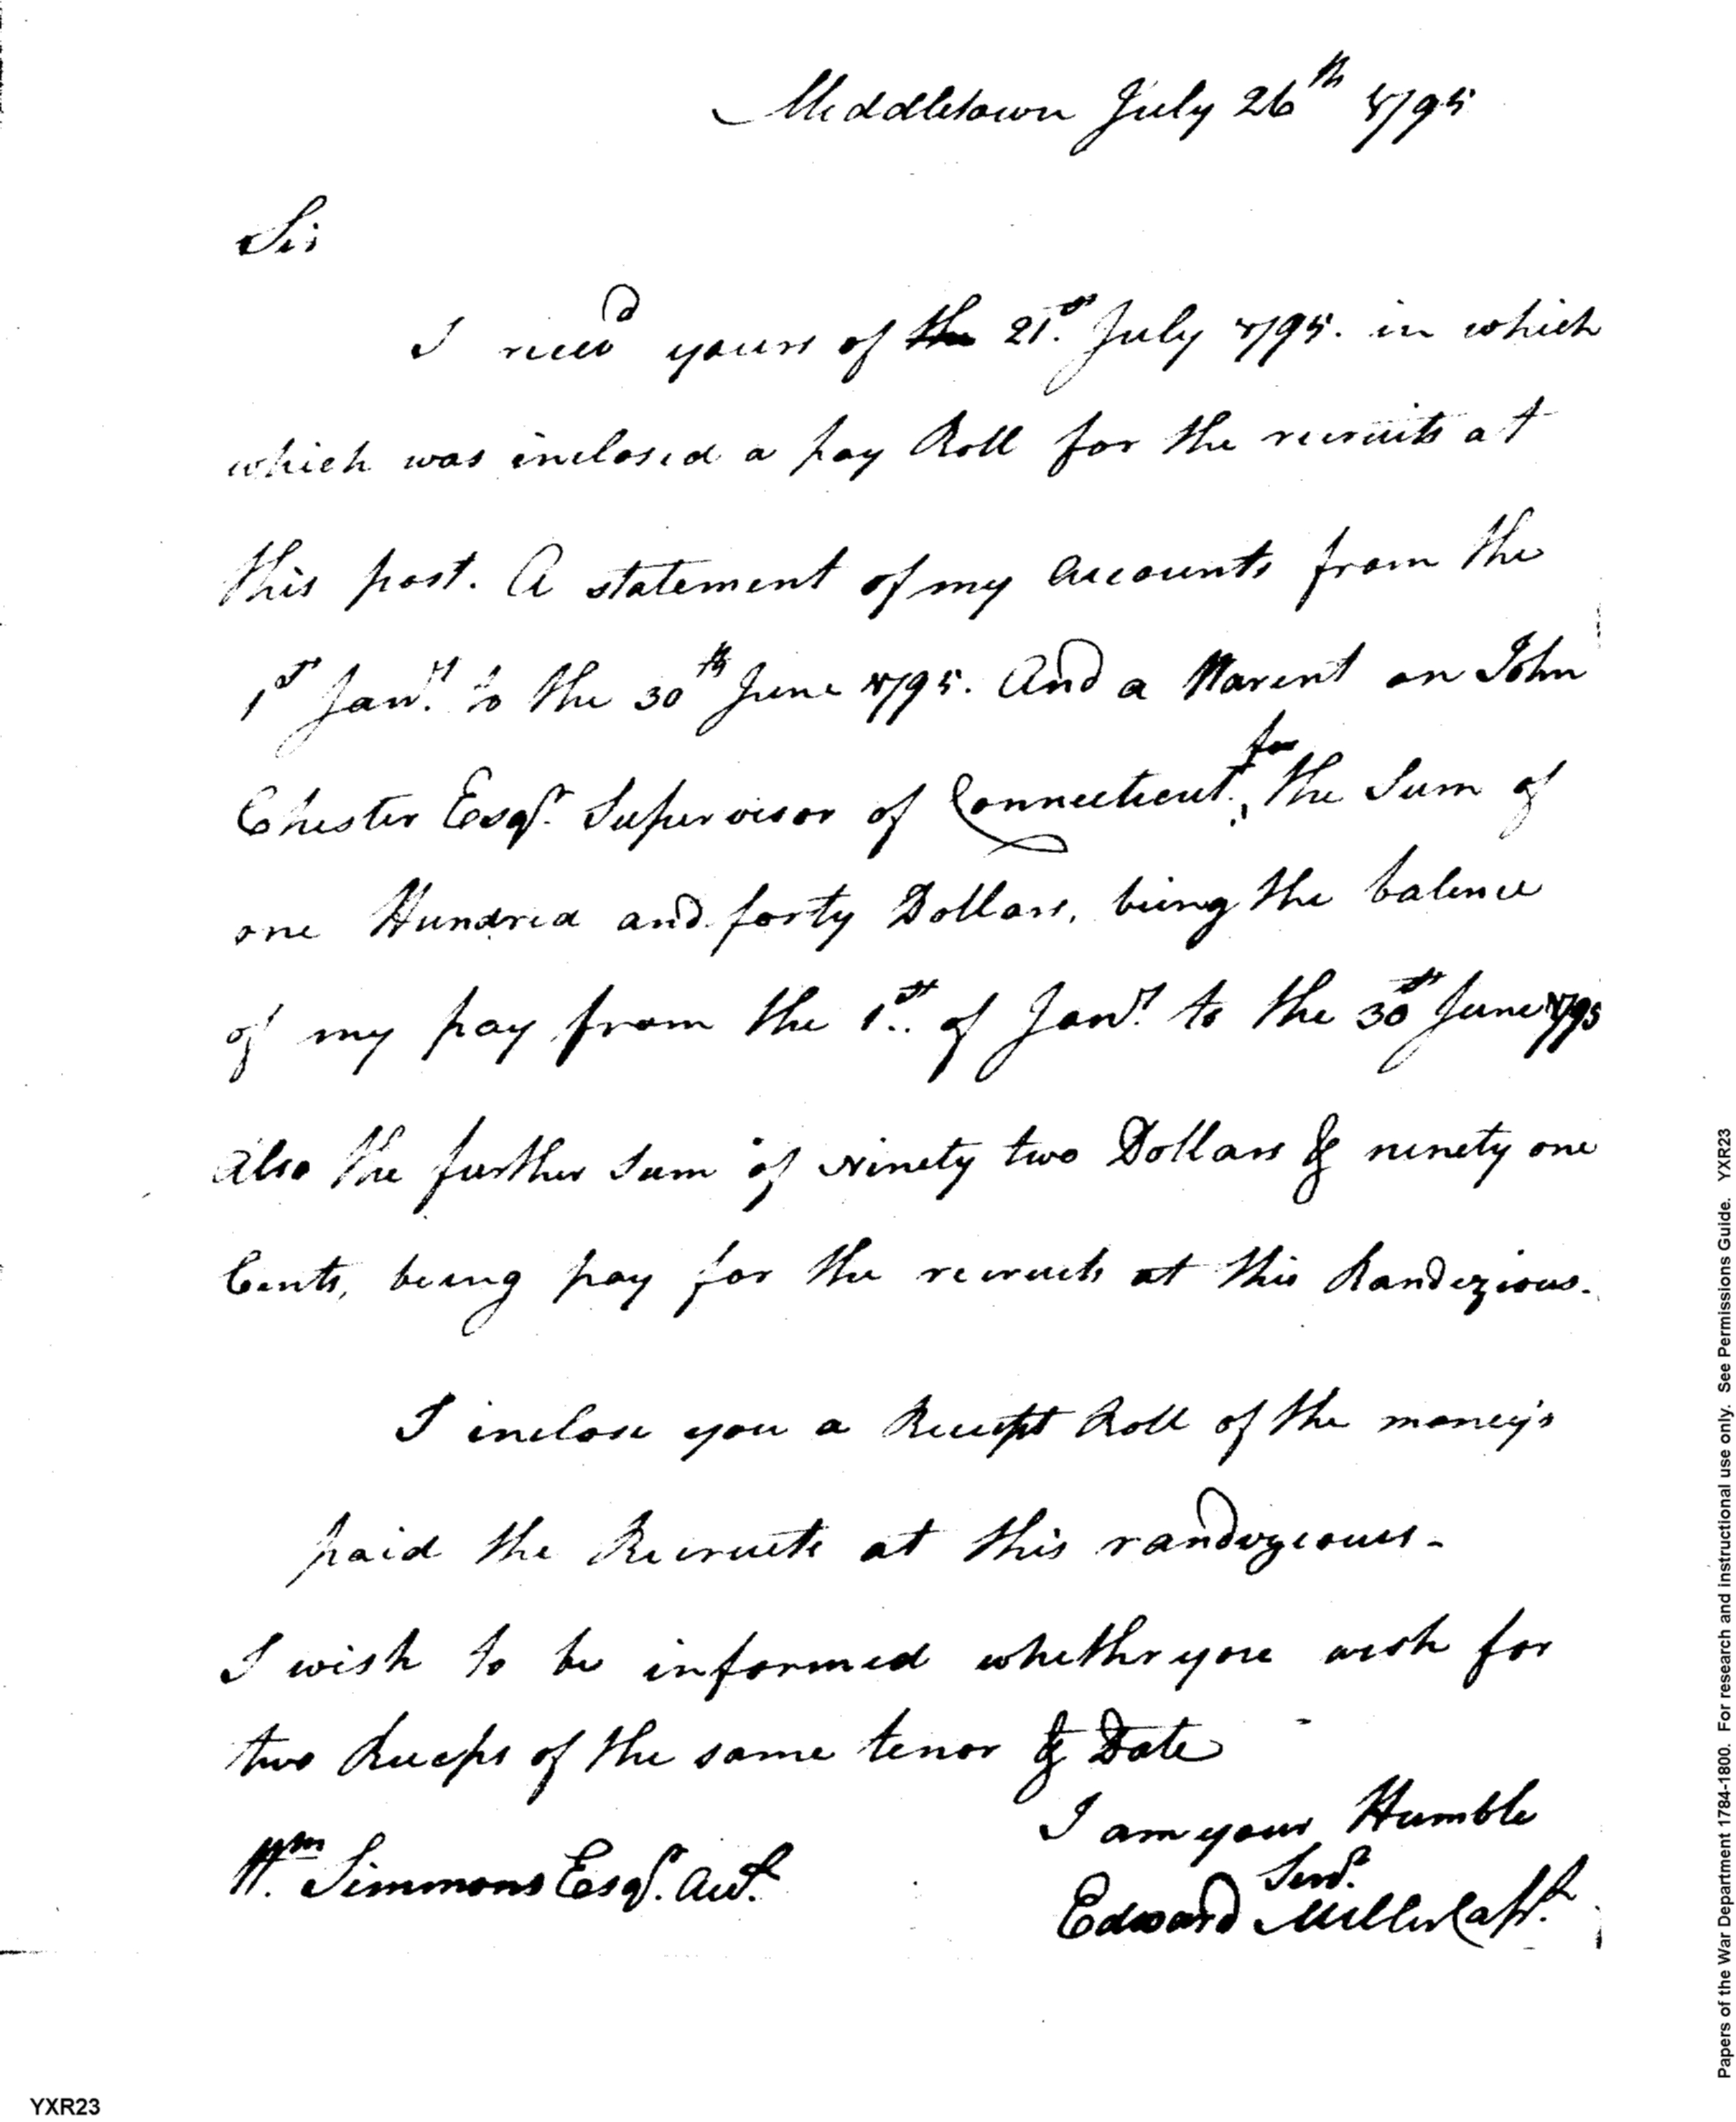 Middletown July 26th 1795
Sir
I recevd yours of the 21st. July 1795. in which
which was inclosed a pay Roll for the recruits at
this post. A statement of my accounts from the
1st Jany. to the 30th June 1795. And a Warent on John
Chester Esqr. Supervisor of Connecticut. for the Sum of
one Hundred and forty Dollars, being the balence
of my pay from the 1st. of Jany. to the 30th June 1795
Also the further Sum of ninety two Dollars & ninety one
Cents, being pay for the recruits at this Randezious.
I inclose you a Receipt Roll of the money's
paid the Recruits at this randezeious -
I wish to be informed whethr you wish for
two Receps of the same tenor & Date
I am your Humble
Servt.
Wm. Simmons Esqr. Act.
Edward Miller Capt.
YXR23
Papers of the War Department 1784-1800. For research and instructional use only. See Permissions Guide. YXR23